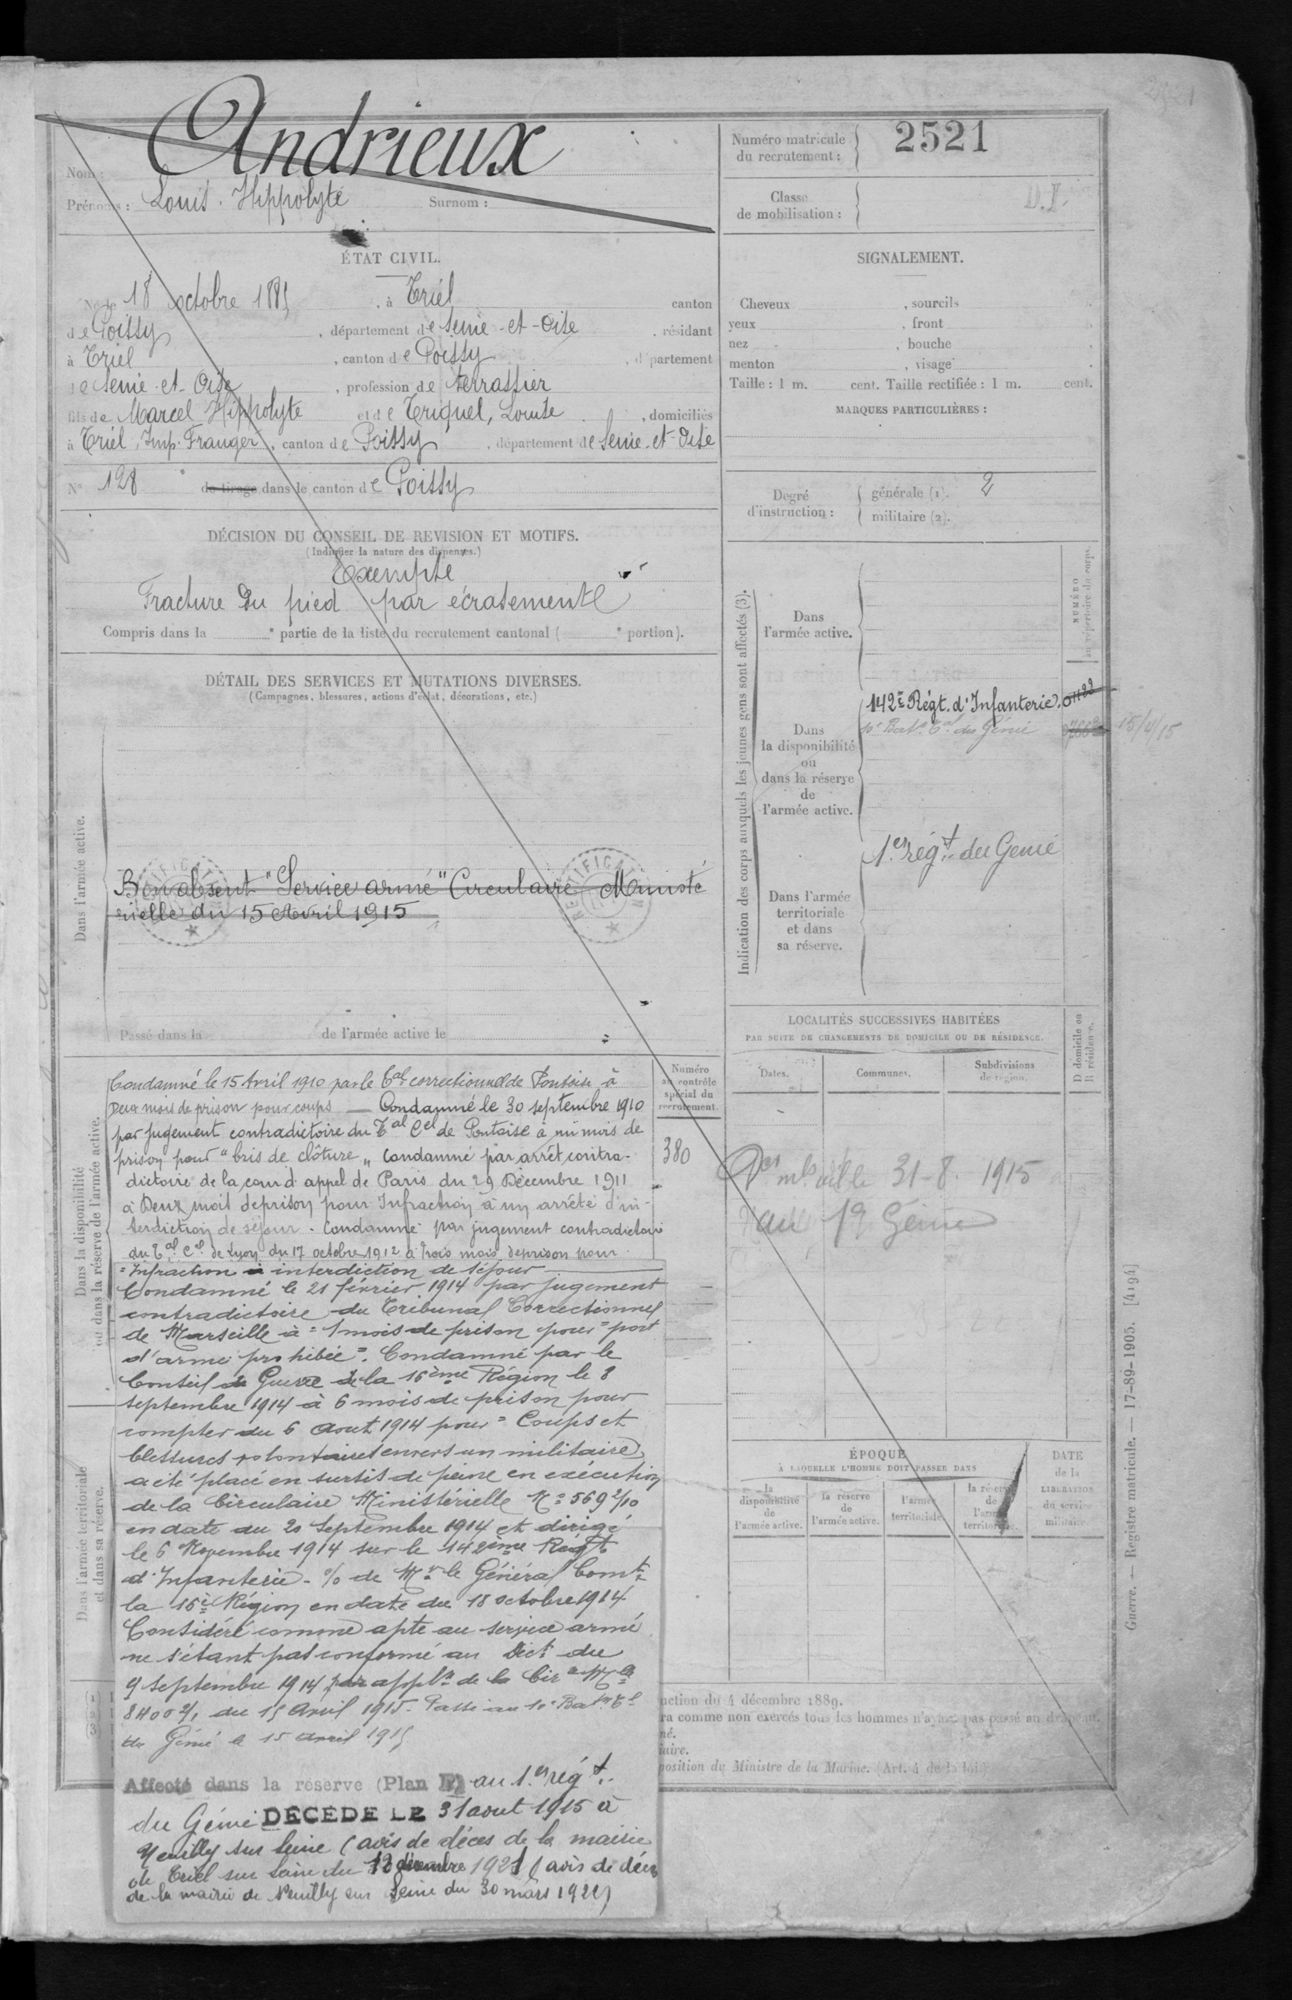 2521
Andrieux
Nom :
Prénoms : Louis Hippolyte Surnom :
Numéro matricule du recrutement : 2521
Classe de mobilisation :
ÉTAT CIVIL.
Né le 18 octobre 1885, à Triel canton
de Poissy, département de Seine-et-Oise, résidant
à Triel, canton de Poissy, département
de Seine-et-Oise, profession de terrassier
fils de Marcel Hippolyte et de Triquel, Louise, domiciliés
à Triel, Imp. Franger, canton de Poissy, département de Seine-et-Oise
N° 128 de tirage dans le canton de Poissy
DÉCISION DU CONSEIL DE REVISION ET MOTIFS.
(Indiquer la nature des dispenses.)
Exempté
Fracture du pied par écrasement
Compris dans la e partie de la liste du recrutement cantonal ( e portion).
DÉTAIL DES SERVICES ET MUTATIONS DIVERSES.
(Campagnes, blessures, actions d'éclat, décorations, etc.)
Dans l'armée active.
Bon absent "Service armé" Circulaire Ministé
rielle du 15 Avril 1915
Passé dans la de l'armée active le
Dans la disponibilité
ou dans la réserve de l'armée active.
Numéro
au contrôle
spécial du
recrutement.
380
Condamné le 15 Avril 1910 par le Tal correctionnel de Pontoise à
Deux mois de prison pour coups — Condamné le 30 septembre 1910
par jugement contradictoire du Tal Cel de Pontoise à un mois de
prison pour "bris de clôture" Condamné par arrêt contra-
dictoire de la cour d'appel de Paris du 29 Décembre 1911
à Deux mois de prison pour Infraction à un arrêté d'in-
terdiction de séjour. Condamné par jugement contradictoire
du Tal Cel de Lyon du 17 octobre 1912 à trois mois de prison pour
"Infraction à interdiction de séjour
Condamné le 21 février 1914 par jugement
contradictoire du Tribunal Correctionnel
de Marseille à "1 mois de prison pour "port
d'arme prohibée". Condamné par le
Conseil de Guerre de la 15ème Région le 8
septembre 1914 à 6 mois de prison pour
compter du 6 Aout 1914 pour "Coups et
blessures volontaires envers un militaire,
a été placé en sursis de peine en exécution
de la Circulaire Ministérielle No 569 2/10
en date du 20 Septembre 1914 et dirigé
le 6 Novembre 1914 sur le 142ème Régt
d'Infanterie - % de Mr le Général Comt
la 15e Région en date du 18 octobre 1914
Considéré comme apte au service armé
ne s'étant pas conformé au Déct du
9 septembre 1914, par appln de la Cire Mle
8400 2/1 du 15 Avril 1915. Passé au 10e Baton Tal
du Génie le 15 avril 1915
Affecté dans la réserve (Plan ) au 1er régt
du Génie DÉCÉDÉ LE 31 aout 1915 à
Neuilly sur Seine (avis de décès de la mairie
de Triel sur Seine du 12 décembre 1921 (avis de décès
de la mairie de Neuilly sur Seine du 30 mars 1922)
Dans l'armée territoriale
et dans sa réserve.
SIGNALEMENT.
Cheveux, sourcils
yeux, front
nez, bouche
menton, visage
Taille : 1 m. cent. Taille rectifiée : 1 m. cent.
MARQUES PARTICULIÈRES :
Degré d'instruction : générale (1). 2
militaire (2).
Indication des corps auxquels les jeunes gens sont affectés (3).
NUMÉRO
au répertoire du corps.
Dans
l'armée active.
Dans
la disponibilité
ou
dans la réserve
de
l'armée active.
142e Régt. d'Infanterie.
10e Baton Tal du Génie 15/4/15
Dans l'armée
territoriale
et dans
sa réserve.
1er régt du Génie
LOCALITÉS SUCCESSIVES HABITÉES
PAR SUITE DE CHANGEMENTS DE DOMICILE OU DE RÉSIDENCE.
Dates. Communes. Subdivisions de région.
D domicile ou
R résidence.
31-8. 1915
Génie
ÉPOQUE
À LAQUELLE L'HOMME DOIT PASSER DANS
la disponibilité de l'armée active.
la réserve de l'armée active.
l'armée territoriale.
la réserve de l'armée territoriale.
DATE de la LIBÉRATION du service militaire.
(1)
(2)
(3)
uction du 4 décembre 1889.
ra comme non exercés tous les hommes n'ayant pas passé au drapeau.
né.
iaire.
position du Ministre de la Marine. (Art. 4 de la loi.)
Guerre. — Registre matricule. — 17-89-1905. [4194]